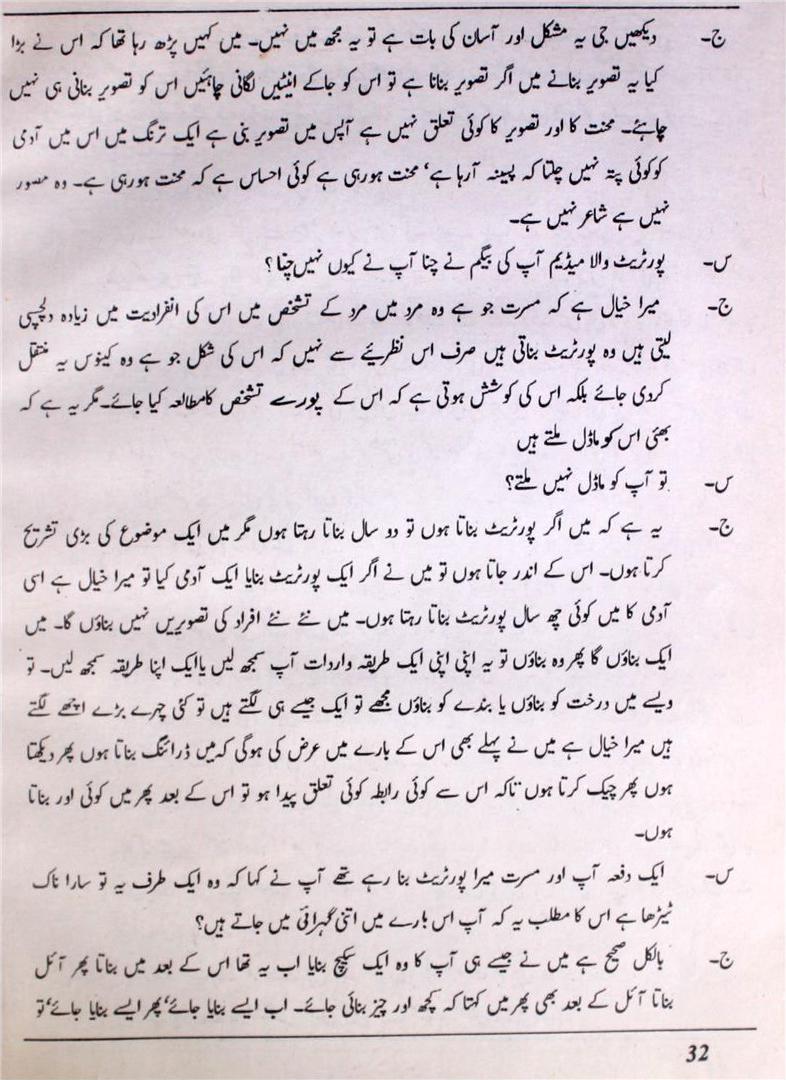 ج۔ دیکھیں جی یہ مشکل اور آسان کی بات ہے تو یہ مجھ میں نہیں۔ میں کہیں پڑھ رہا تھا کہ اس نے بڑا
کیا یہ تصویر بنانے میں اگر تصویر بنانا ہے تو اس کو جاکے اینٹیں لگانی چاہئیں اس کو تصویر بنانی ہی نہیں
چاہئے۔ محنت کا اور تصویر کا کوئی تعلق نہیں ہے آپس میں تصویر بنی ہے ایک ترنگ میں اس میں آدمی
کوکوئی پتہ نہیں چلتا کہ پسینہ آرہا ہے‘ محنت ہورہی ہے کوئی احساس ہے کہ محنت ہورہی ہے۔ وہ مصور
نہیں ہے شاعر نہیں ہے۔
س۔ پورٹریٹ والا میڈیم آپ کی بیگم نے چنا آپ نے کیوں نہیں چنا؟
ج۔ میرا خیال ہے کہ مسرت جو ہے وہ مرد میں مرد کے تشخص میں اس کی انفرادیت میں زیادہ دلچسپی
لیتی ہیں وہ پورٹریٹ بناتی ہیں صرف اس نظریئے سے نہیں کہ اس کی شکل جو ہے وہ کینوس یہ منتقل
کردی جائے بلکہ اس کی کوشش ہوتی ہے کہ اس کے پورے تشخص کامطالعہ کیا جائے۔ مگر یہ ہے کہ
بھئی اس کو ماڈل ملتے ہیں
س۔ تو آپ کو ماڈل نہیں ملتے؟
ج۔ یہ ہے کہ میں اگر پورٹریٹ بناتا ہوں تو دو سال بناتا رہتا ہوں مگر میں ایک موضوع کی بڑی تشریح
کرتا ہوں۔ اس کے اندر جاتا ہوں تو میں نے اگر ایک پورٹریٹ بنایا ایک آدمی کیا تو میرا خیال ہے اسی
آدمی کا میں کوئی چھ سال پورٹریٹ بناتا رہتا ہوں۔ میں نئے نئے افراد کی تصویریں نہیں بناؤں گا۔ میں
ایک بناؤں گا پھر وہ بناؤں تو یہ اپنی اپنی ایک طریقہ واردات آپ سمجھ لیں یاایک اپنا طریقہ سمجھ لیں۔ تو
ویسے میں درخت کو بناؤں یا بندے کو بناؤں مجھے تو ایک جیسے ہی لگتے ہیں تو کئی چہرے بڑے اچھے لگتے
ہیں میرا خیال ہے میں نے پہلے بھی اس کے بارے میں عرض کی ہوگی کہ میں ڈرائنگ بناتا ہوں پھر دیکھتا
ہوں پھر چیک کرتا ہوں تاکہ اس سے کوئی رابطہ کوئی تعلق پیدا ہو تو اس کے بعد پھر میں کوئی اور بناتا
ہوں۔
س۔ ایک دفعہ آپ اور مسرت میرا پورٹریٹ بنا رہے تھے آپ نے کہا کہ وہ ایک طرف یہ تو سارا ناک
ٹیڑھا ہے اس کا مطلب یہ کہ آپ اس بارے میں اتنی گہرائی میں جاتے ہیں؟
ج۔ بالکل صحیح ہے میں نے جیسے ہی آپ کا وہ ایک سکیچ بنایا اب یہ تھا اس کے بعد میں بناتا پھر آئل
بناتا آئل کے بعد بھی پھر میں کہتا کہ کچھ اور چیز بنائی جائے۔ اب ایسے بنایا جائے‘ پھر ایسے بنایا جائے‘ تو
32